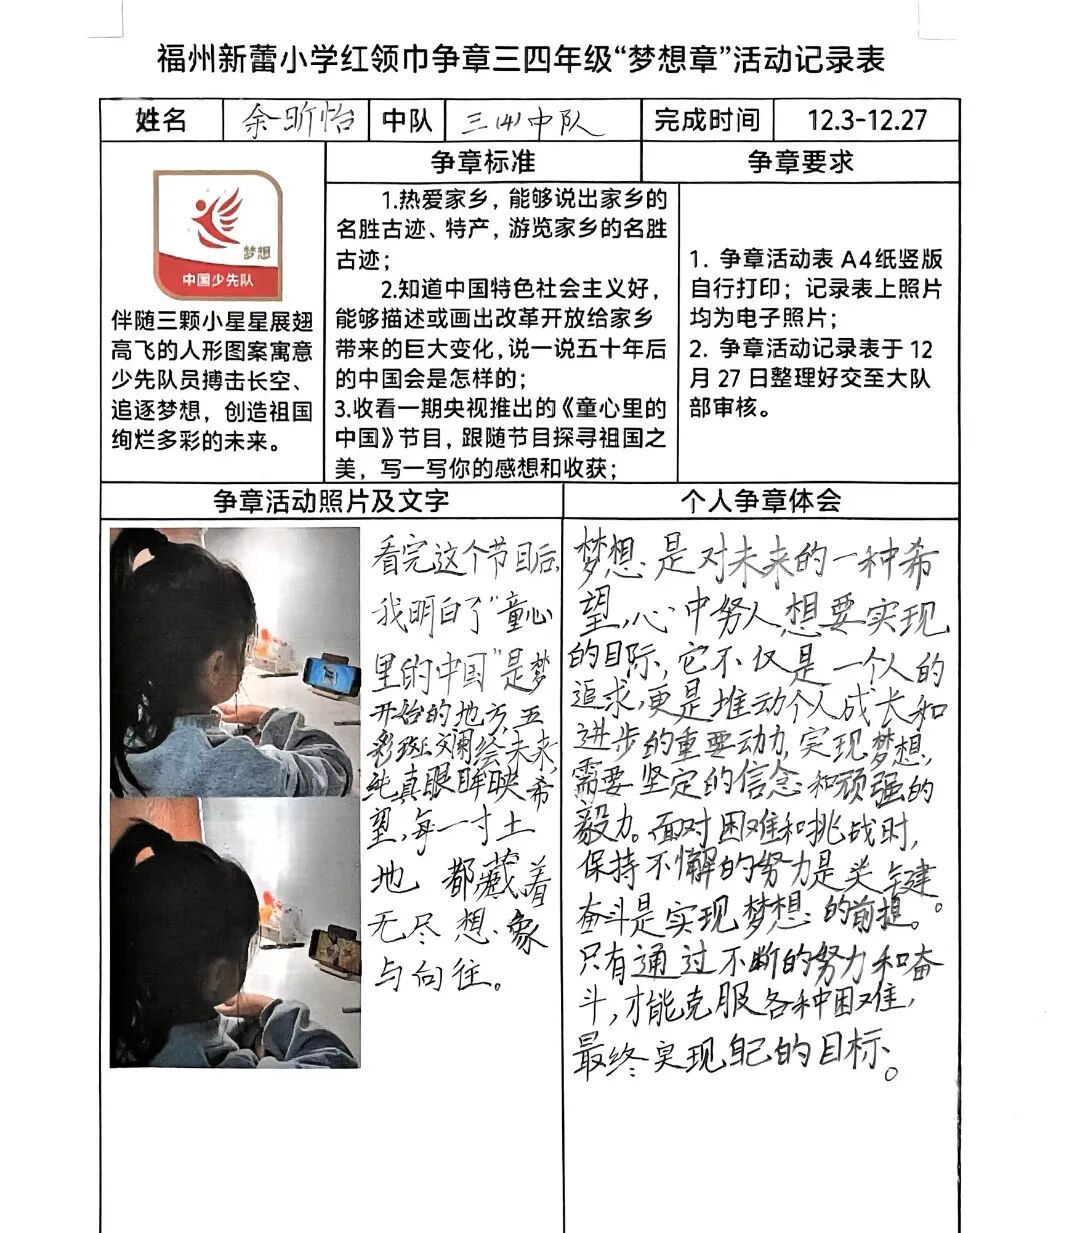 福州新蕾小学红领巾争章三四年级“梦想章”活动记录表
姓名 余昕怡 中队 三(4)中队 完成时间 12.3-12.27
梦想
中国少先队
伴随三颗小星星展翅
高飞的人形图案寓意
少先队员搏击长空、
追逐梦想，创造祖国
绚烂多彩的未来。
争章标准
1.热爱家乡，能够说出家乡的
名胜古迹、特产，游览家乡的名胜
古迹；
2.知道中国特色社会主义好，
能够描述或画出改革开放给家乡
带来的巨大变化，说一说五十年后
的中国会是怎样的；
3.收看一期央视推出的《童心里的
中国》节目，跟随节目探寻祖国之
美，写一写你的感想和收获；
争章要求
1. 争章活动表A4纸竖版
自行打印；记录表上照片
均为电子照片；
2. 争章活动记录表于12
月27日整理好交至大队
部审核。
争章活动照片及文字
看完这个节目后,
我明白了“童心
里的中国”是梦
开始的地方,五
彩斑斓绘未来,
纯真眼眸映希
望,每一寸土
地都藏着
无尽想象
与向往。
个人争章体会
梦想是对未来的一种希
望,心中努人想要实现
的目际,它不仅是一个人的
追求,更是堆动个人成长和
进步的重要动力,实现梦想,
需要坚定的信念和顽强的
毅力。面对困难和挑战时,
保持不懈的努力是关键。
奋斗是实现梦想的前提。
只有通过不断的努力和奋
斗,才能克服各种困难,
最终实现自己的目标。